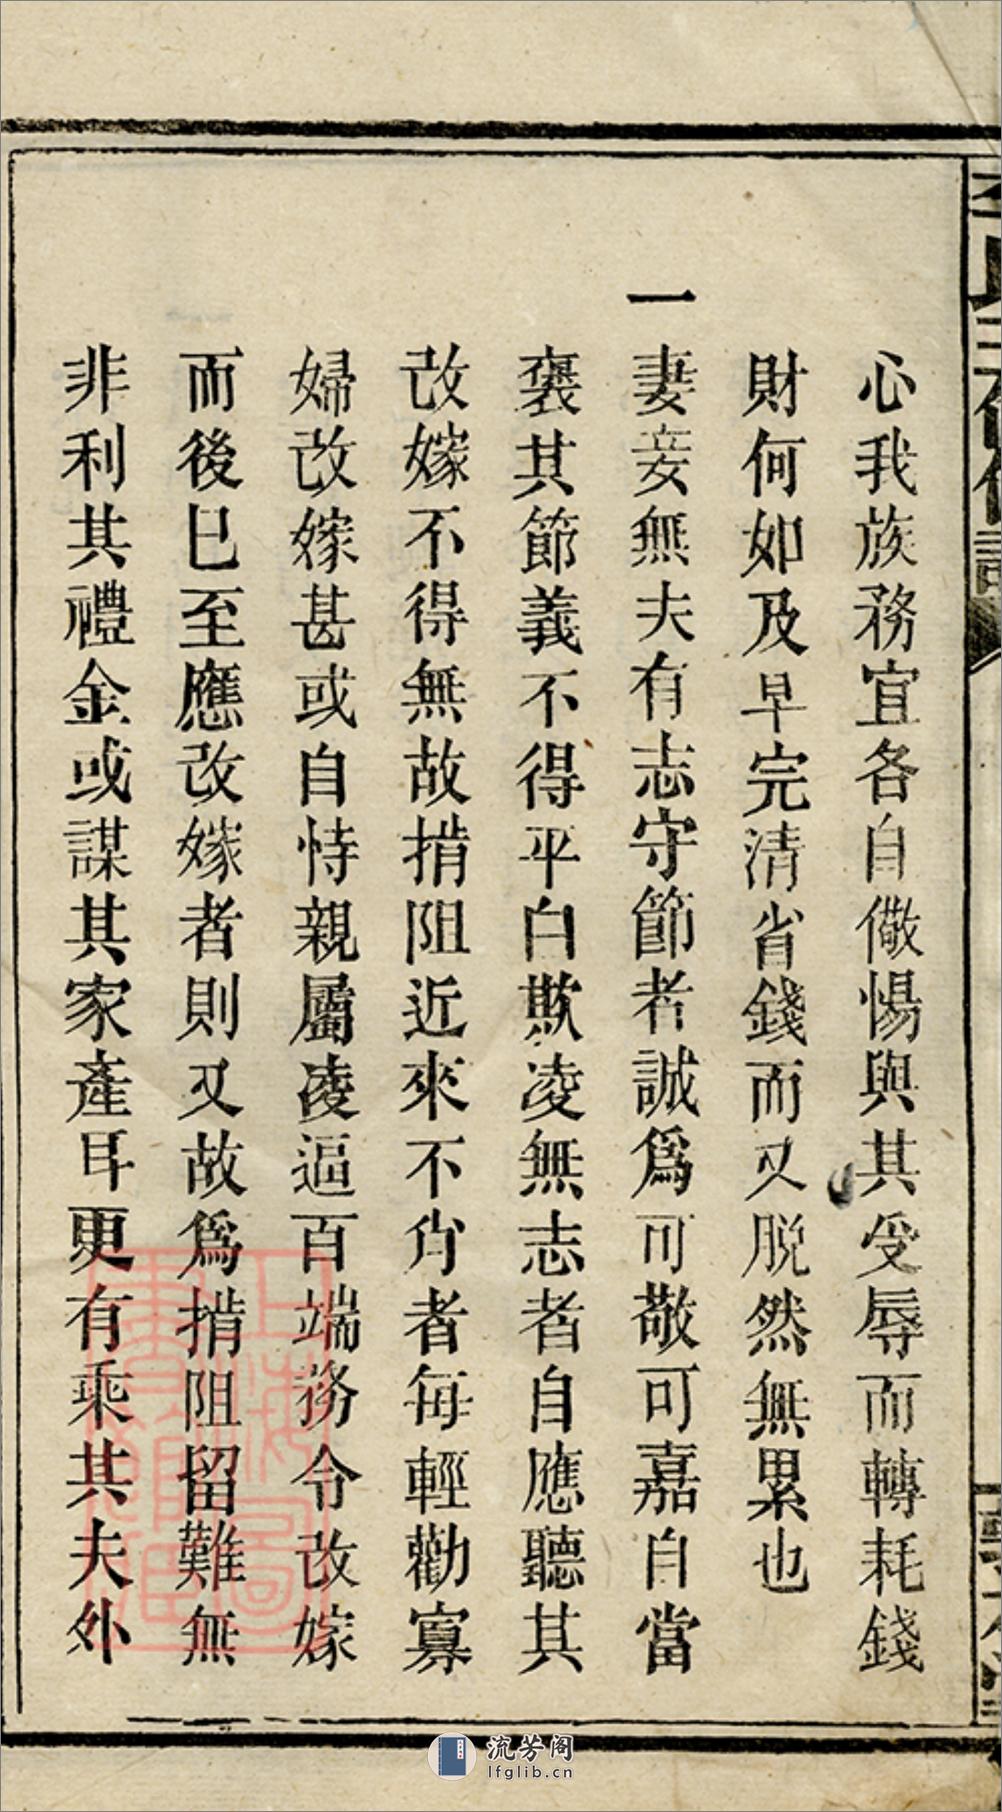 心我族務宜各自儆惕與其受辱而轉耗錢
財何如及早完清省錢而又脫然無累也
一妻妾無夫有志守節者誠爲可敬可嘉自當
褒其節義不得平白欺凌無志者自應聽其
改嫁不得無故掯阻近來不肖者每輕勸寡
婦改嫁甚或自恃親屬凌逼百端務令改嫁
而後已至應改嫁者則又故爲掯阻留難無
非利其禮金或謀其家產耳更有乘其夫外
上海圖書館藏
流芳阁
lfglib.cn